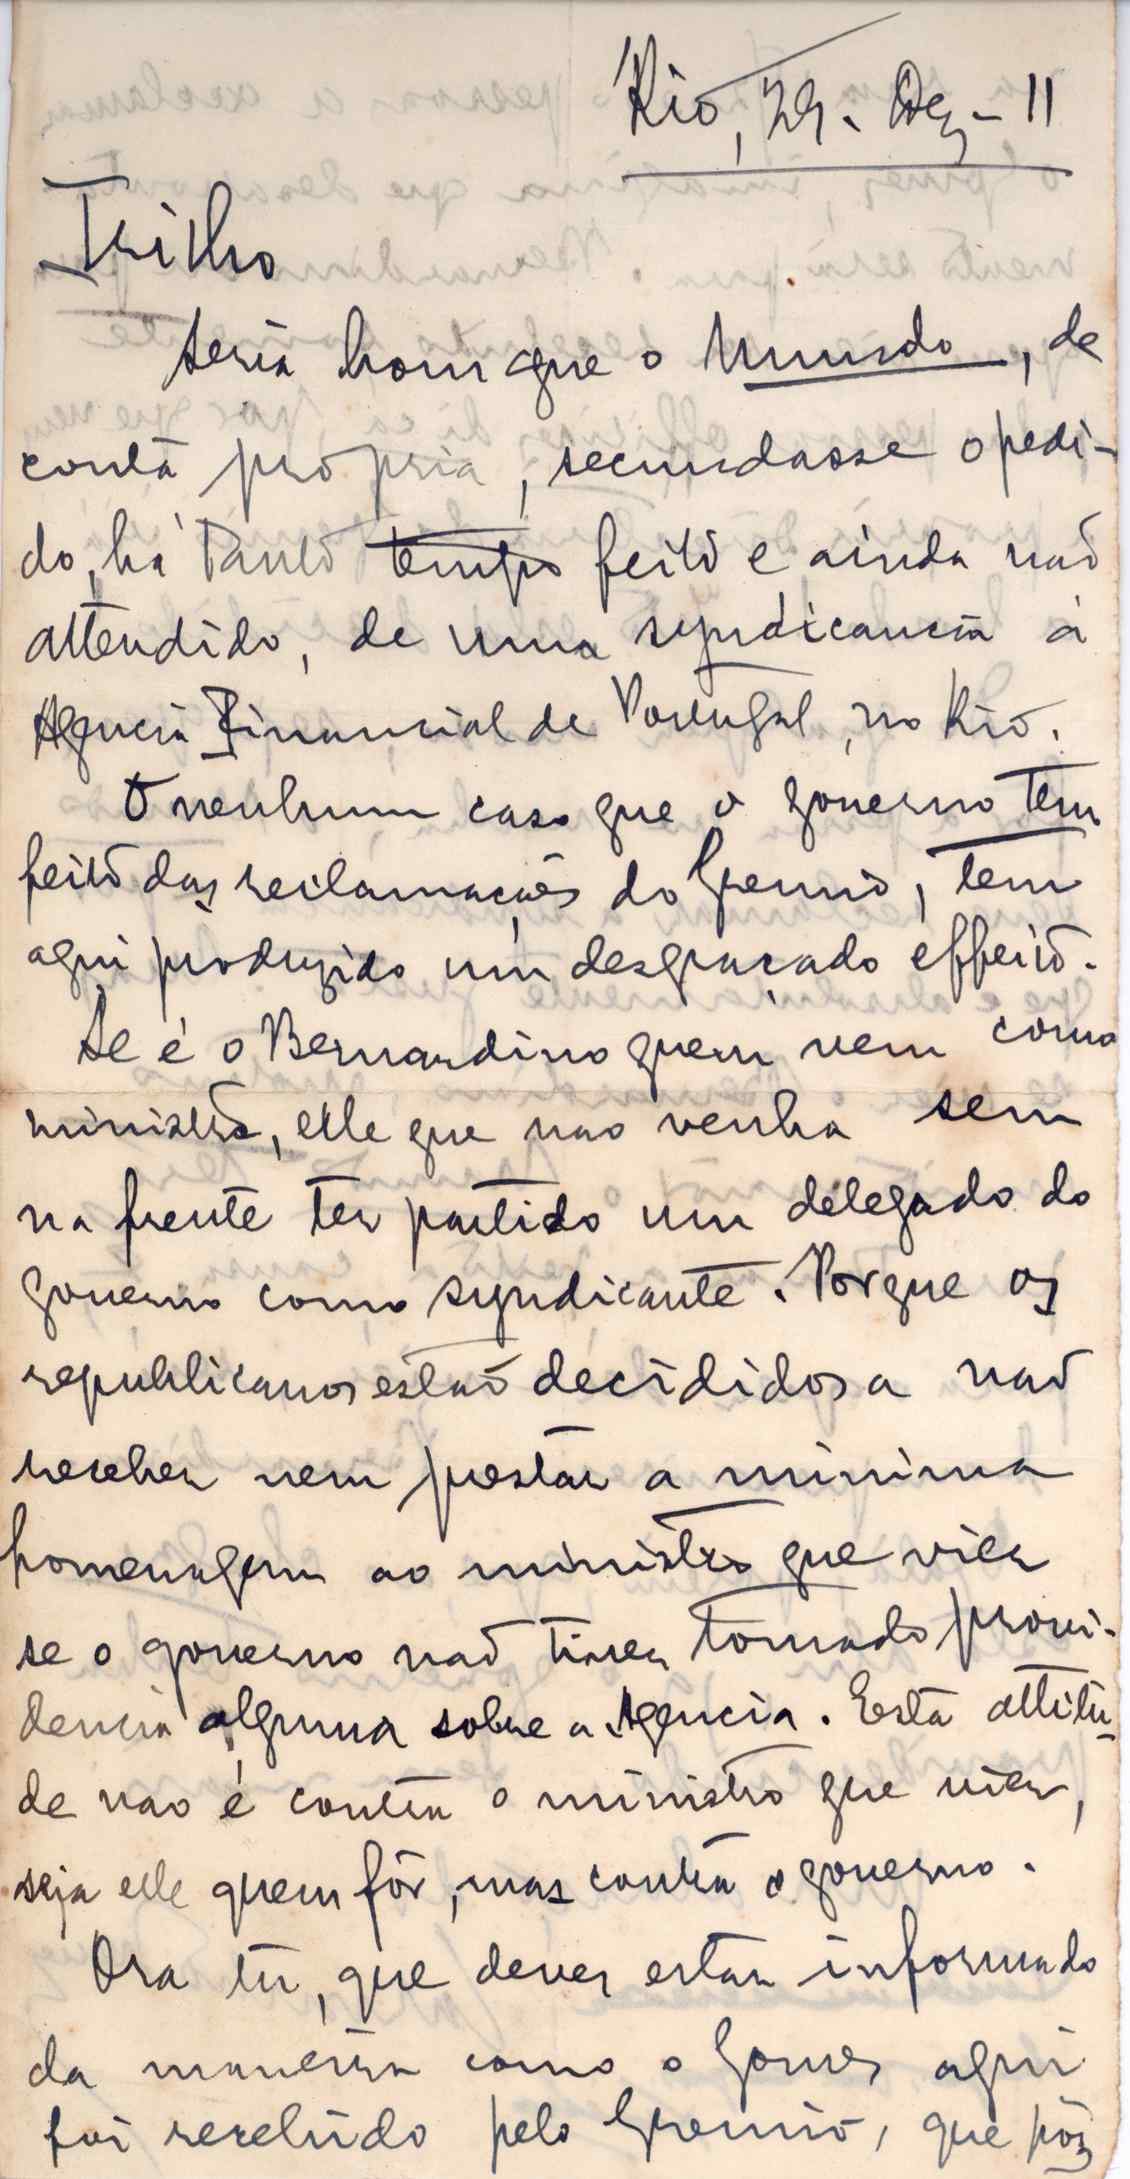 Rio, 29. Dez - 11
Trilho
Seria bom que o Mundo, de
conta propria, secundasse o pedi-
do, há tanto tempo feito e ainda não
attendido, de uma syndicancia á
Agencia Financial de Portugal, no Rio.
O nenhum caso que o governo tem
feito das reclamações do Gremio, tem
aqui produzido um desgraçado effeito.
Se é o Bernardino quem vem como
ministro, elle que nao venha sem
na frente ter partido um delegado do
governo como syndicante. Porque os
republicanos estão decididos a não
receber nem prestar a minima
homenagem ao ministro que vier
se o governo não tiver tomado provi-
dencia alguma sobre a Agencia. Esta attitu-
de nao é contra o ministro que vier,
seja elle quem fôr, mas contra o governo.
Ora tu, que deves estar informado
da maneira como o Gomes aqui
foi recebido pelo Gremio, que pôz